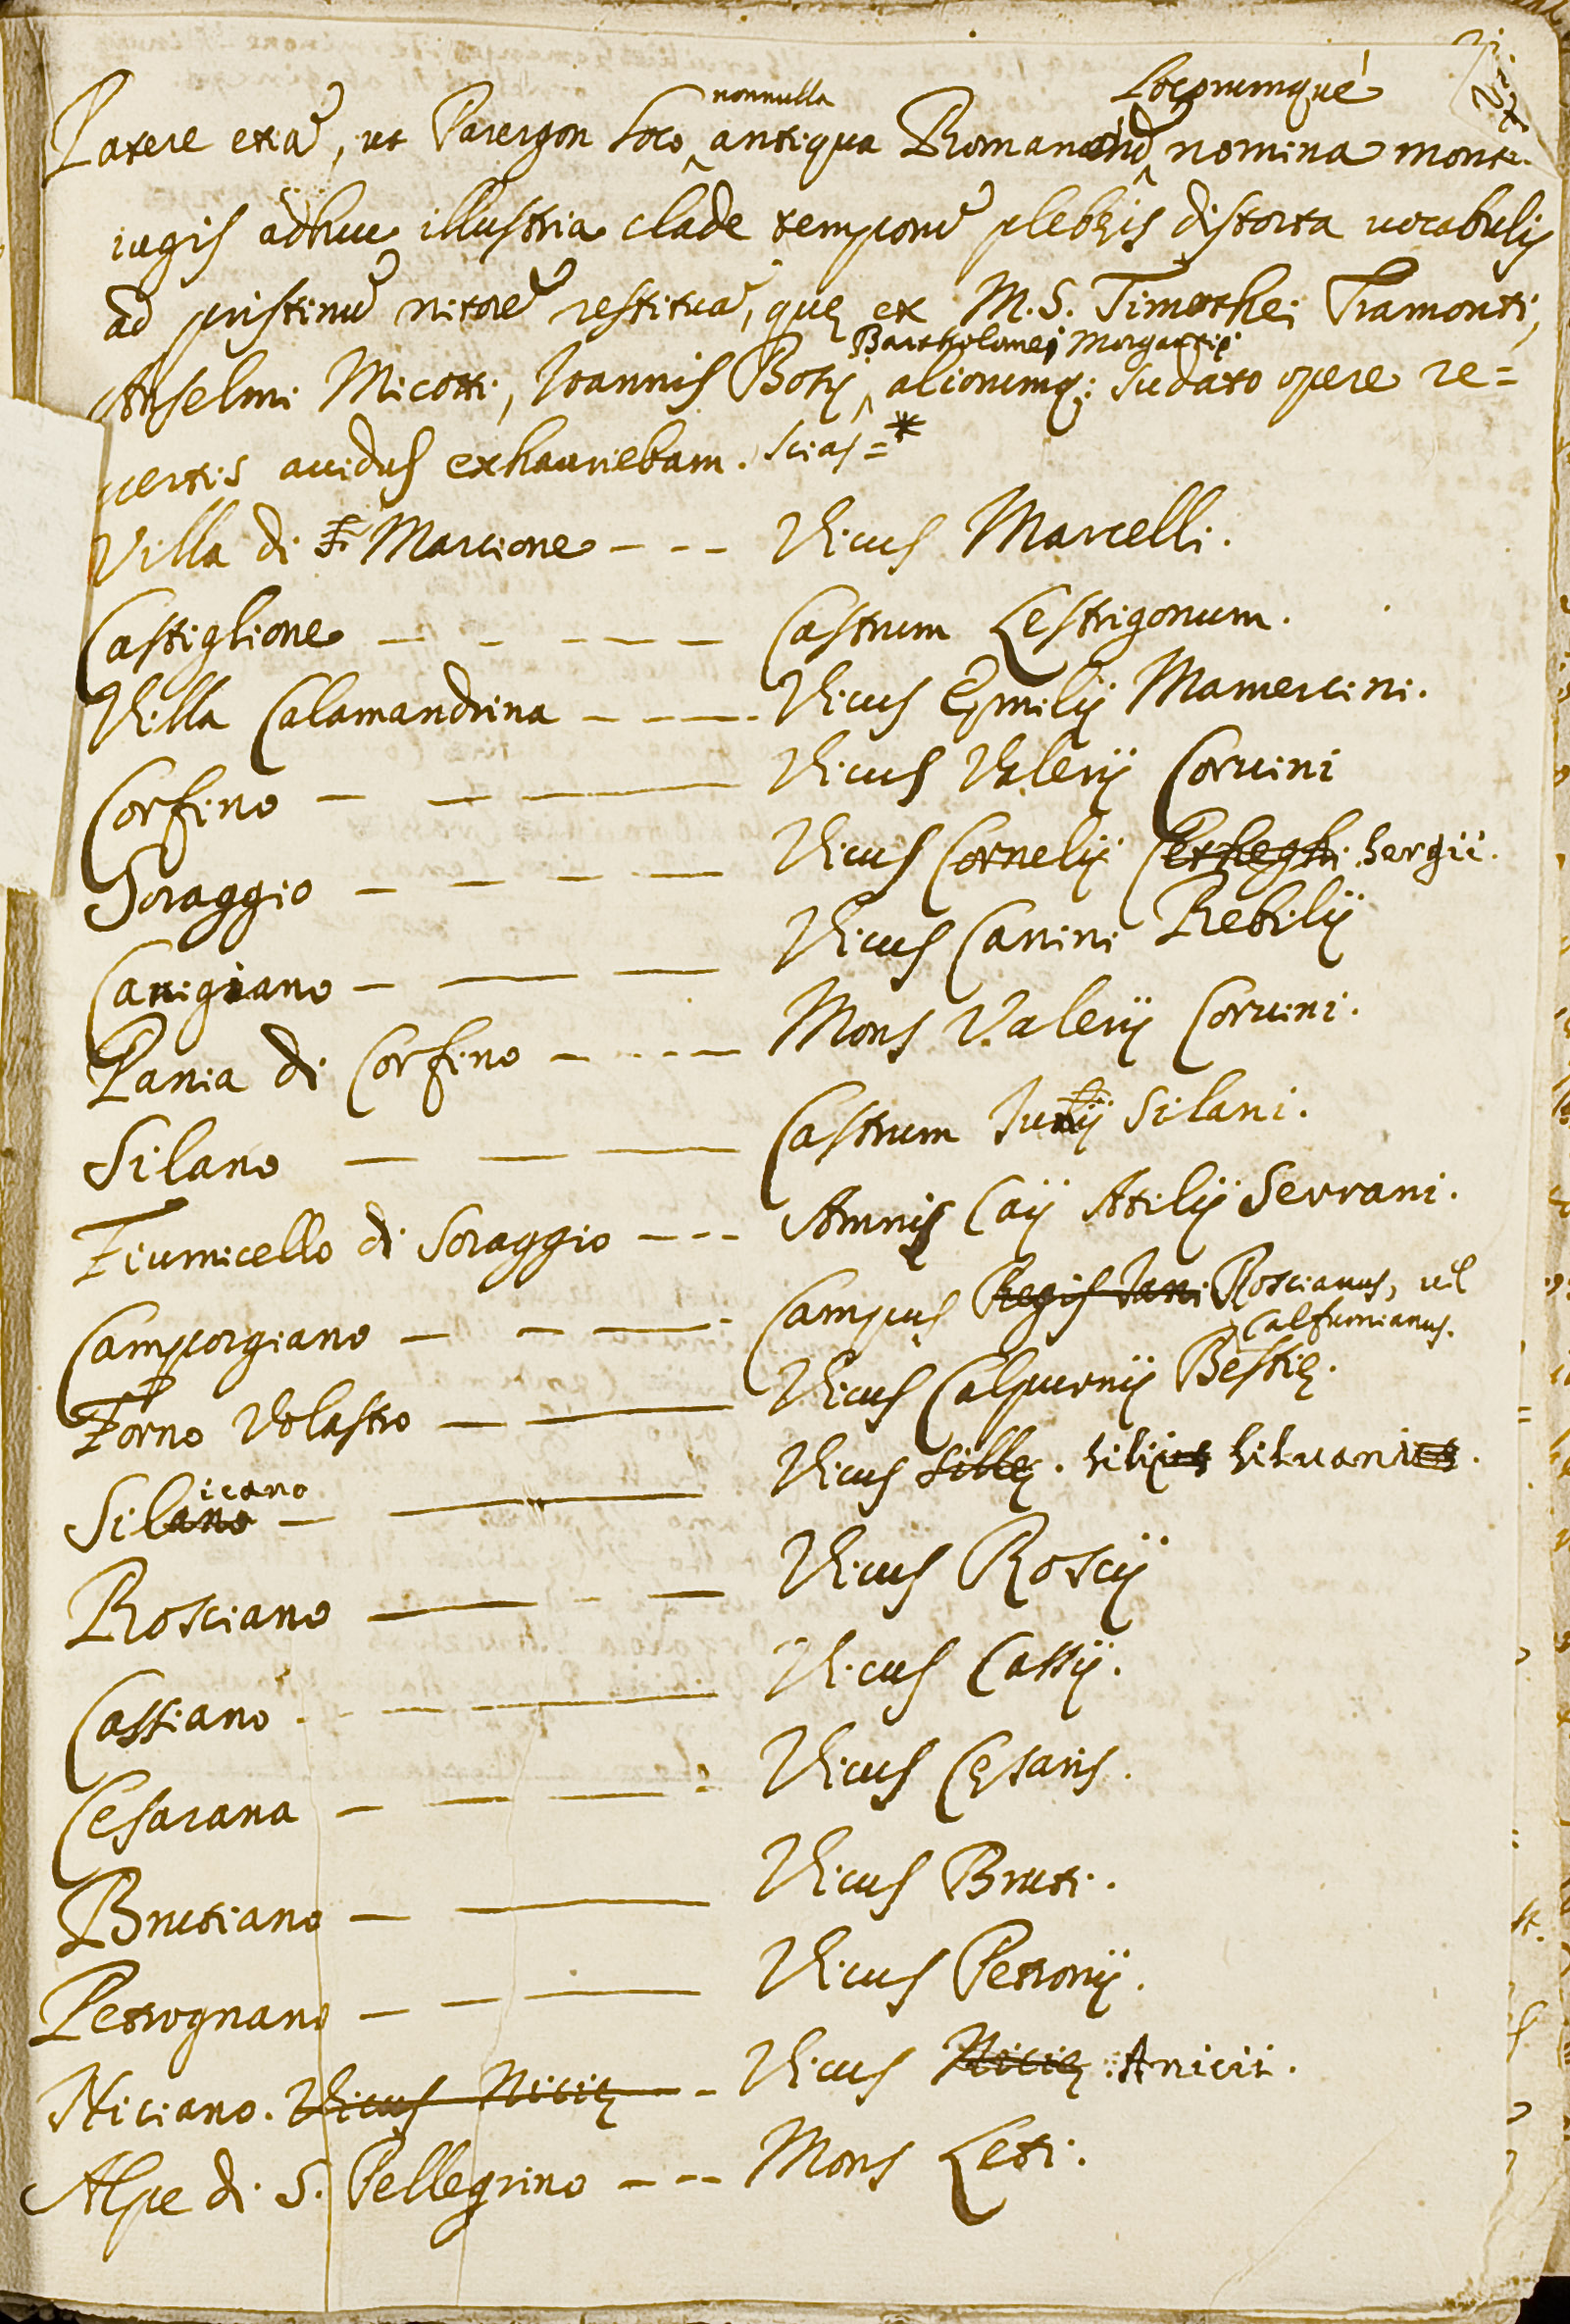 Patere etiã, ut Parergon loco nonnulla antiqua Romanorũ Locorumquè nomina mont.
iugis adhuc illustria clade temporũ plebeis distorta vocabulis
ad pristinũ nitorẽ restituã, quę ex M.S. Timothei Tramonti,
Anselmi Micotti, Ioannis Botij Bartholomei Morgantij aliorumq; sudato opere re=
pertis auidus exhauriebam. Scias=*
Villa di Marcione - - - Vicus Marcelli.
Castiglione - - - - - Castrum Lestrigonum.
Villa Calamandrina - - - Vicus Ęmilij Mamercini.
Corfino - - - Vicus Valerij Coruini
Soraggio - - - - Vicus Cornelij Cethegi Sergii.
Canigiano - - - Vicus Canini Rebilij
Pania di Corfino - - - - Mons Valerij Coruini.
Silano - - - Castrum Junij Silani.
Fiumicello di Soraggio - - - Amnis Caij Atilij Serrani.
Camporgiano - - - Campus Regis Iani Roscianus, uel Calfurnianus.
Forno Volastro - - Vicus Calpurnij Bestię.
Silicano - - Vicus Sillę. Silij Siluani.
Rosciano - - - Vicus Roscij
Cassiano - - - - Vicus Cassij.
Cesarana - - - - Vicus Cęsaris.
Brutiano - - Vicus Bruti.
Petrognano - - - Vicus Petronij.
Niciano. Vicus Nicię - - Vicus Nicię Anicii.
Alpe di S. Pellegrino - - - Mons Leti.